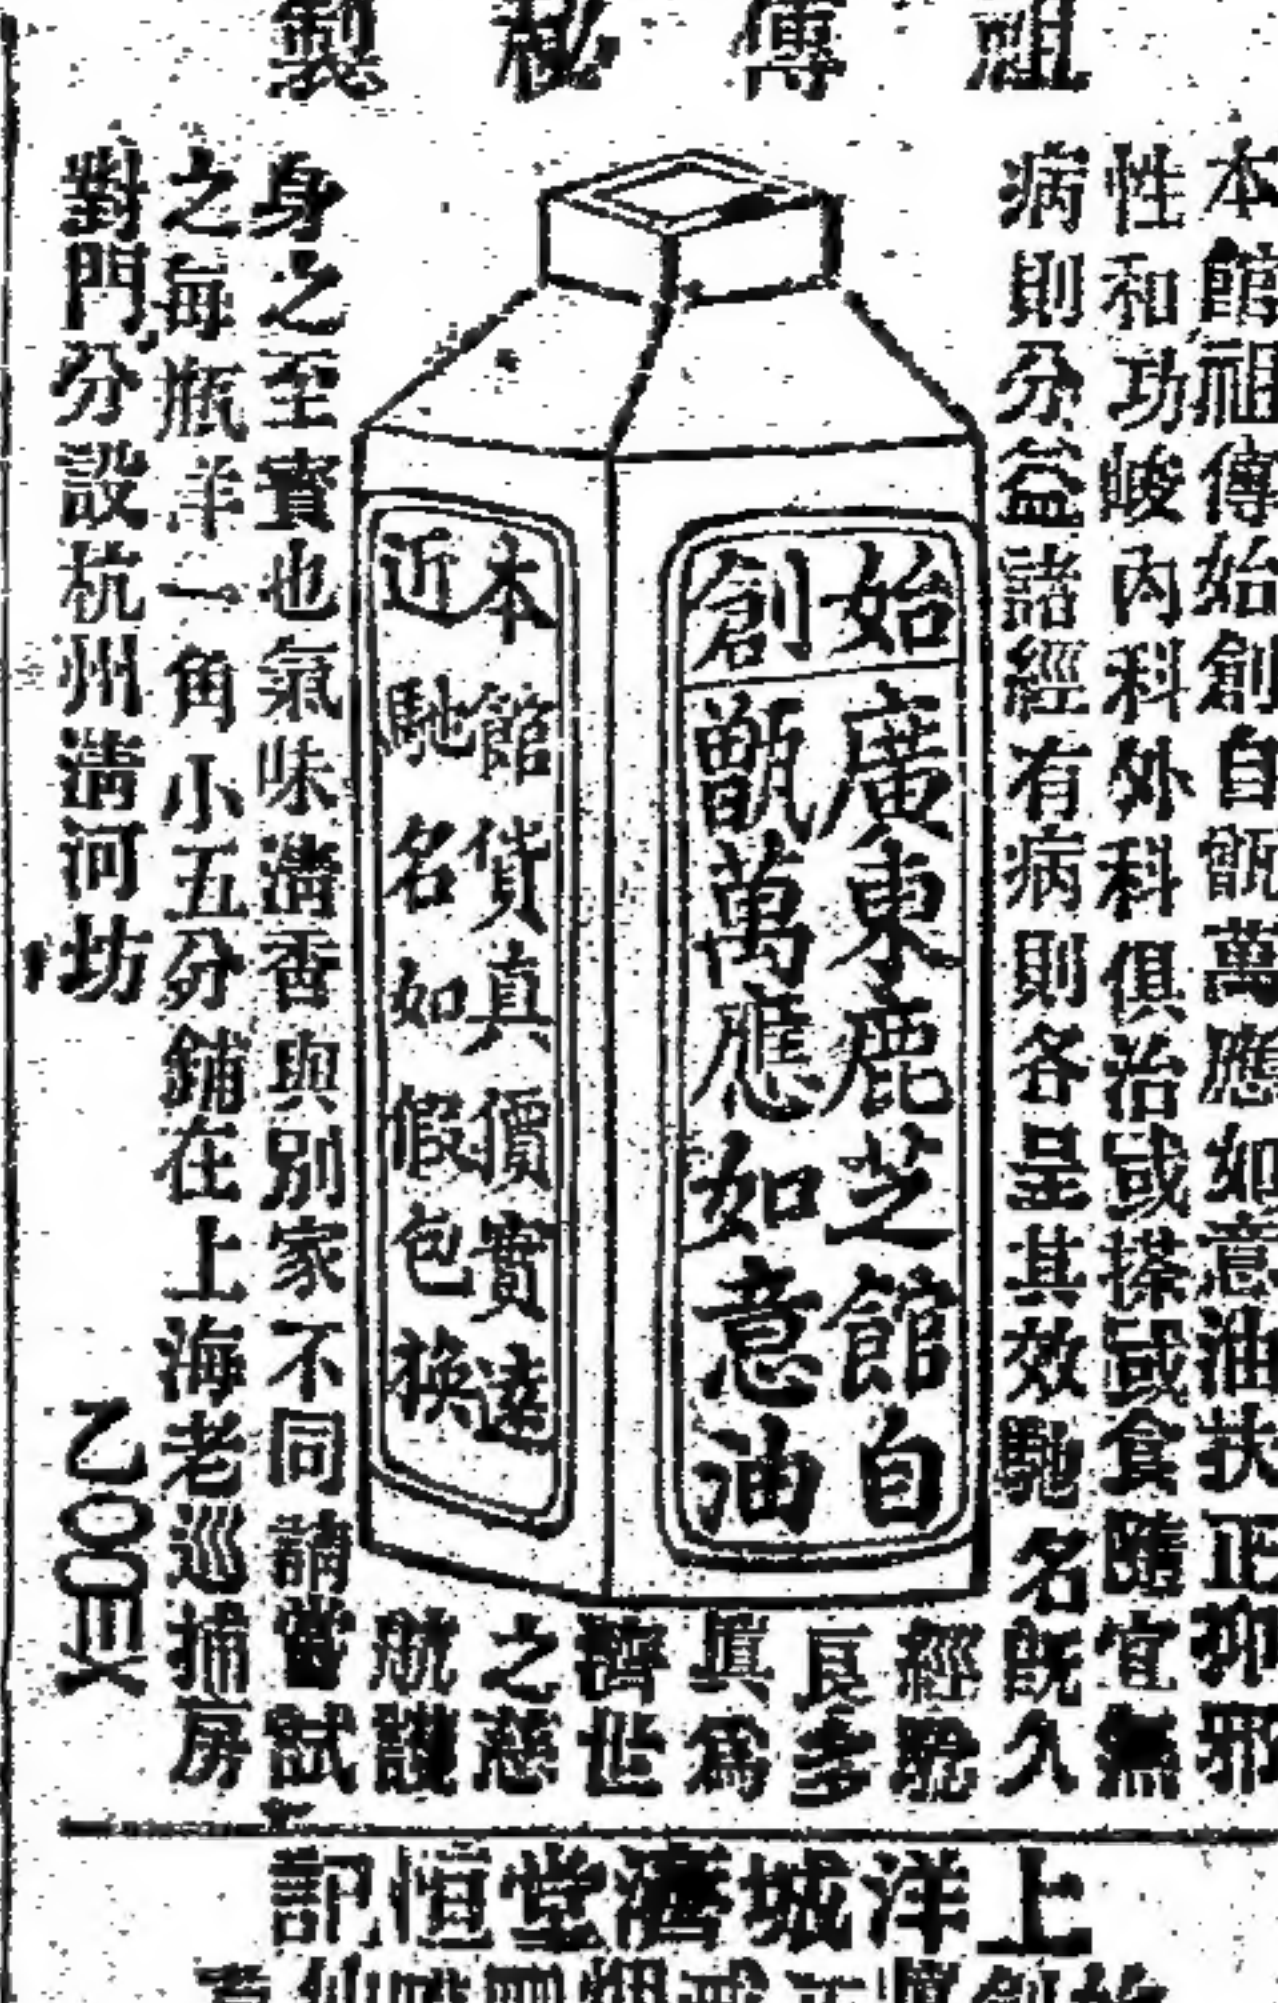 祖傳秘製
本館祖傳始創自甑萬應如意油扶正抑邪
性和功峻內科外科俱治或搽或食隨宜無
病則分益諸經有病則各呈其效馳名既久
經驗
良多
真為
濟世
之慈
航護
身之至寶也氣味清香與別家不同請嘗試
之每瓶洋一角小五分鋪在上海老巡捕房
對門分設杭州清河坊
乙〇〇三〤
始創
廣東鹿芝館自
甑萬應如意油
本館貨真價實遠
近馳名如假包換
上洋城濟堂恒記